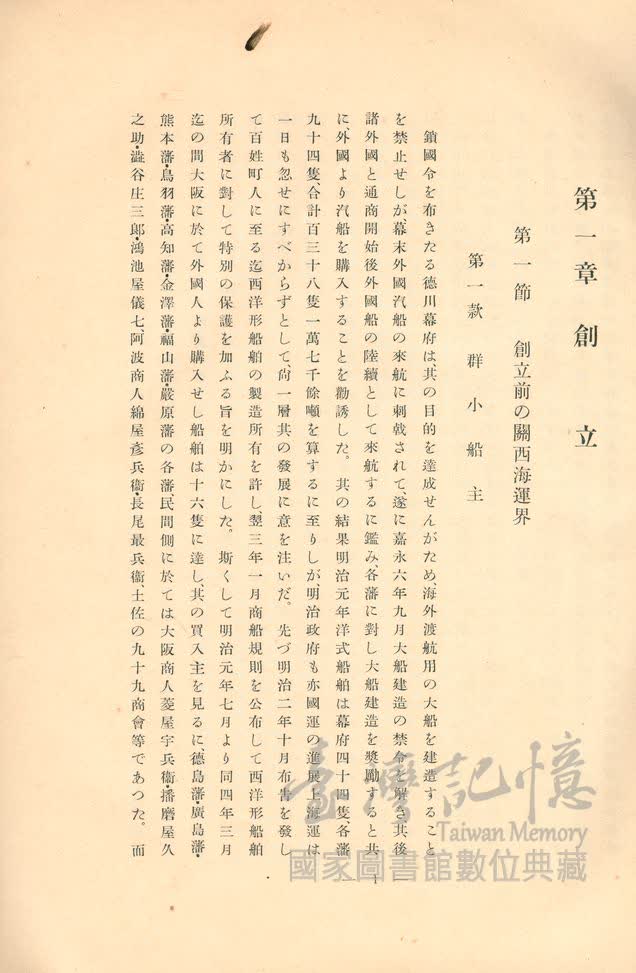 第一章 創立
第一節 創立前の關西海運界
第一款 群小船主
鎖國令を布きたる德川幕府は、其の目的を達成せんがため、海外渡航用の大船を建造すること
を禁止せしが幕末外國汽船の來航に刺戟されて、遂に嘉永六年九月大船建造の禁令を解き其後
諸外國と通商開始後外國船の陸續として來航するに鑑み、各藩に對し大船建造を奬勵すると共
に、外國より汽船を購入することを勸誘した。其の結果明治元年洋式船舶は幕府四十四隻、各藩
九十四隻、合計百三十八隻一萬七千餘噸を算するに至りしが、明治政府も亦國運の進展上海運は
一日も忽せにすべからずとして、尙一層其の發展に意を注いだ。先づ明治二年十月布吿を發し
て百姓町人に至る迄西洋形船舶の製造所有を許し、翌三年一月商船規則を公布して西洋形船舶
所有者に對して特別の保護を加ふる旨を明かにした。斯くして明治元年七月より同四年三月
迄の間大阪に於て外國人より購入せし船舶は十六隻に達し、其の買入主を見るに、德島藩・廣島藩・
熊本藩・鳥羽藩・高知藩・金澤藩・福山藩・嚴原藩の各藩、民間側に於ては大阪商人菱屋宇兵衞・播磨屋久
之助・澁谷庄三郞・鴻池屋儀七、阿波商人綿屋彥兵衞・長尾最兵衞、土佐の九十九商會等であつた。而
一
臺灣記憶
Taiwan Memory
國家圖書館數位典藏